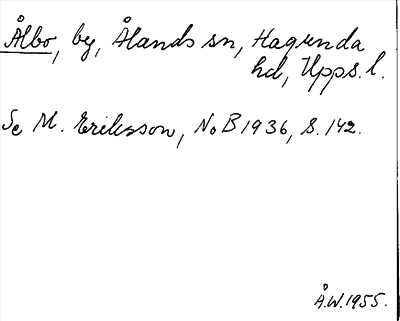 Ålbo, by, Ålands sn, Hagunda
hd, Upps. l.
Se M. Eriksson, NoB 1936, s. 142.
Å.W. 1955.